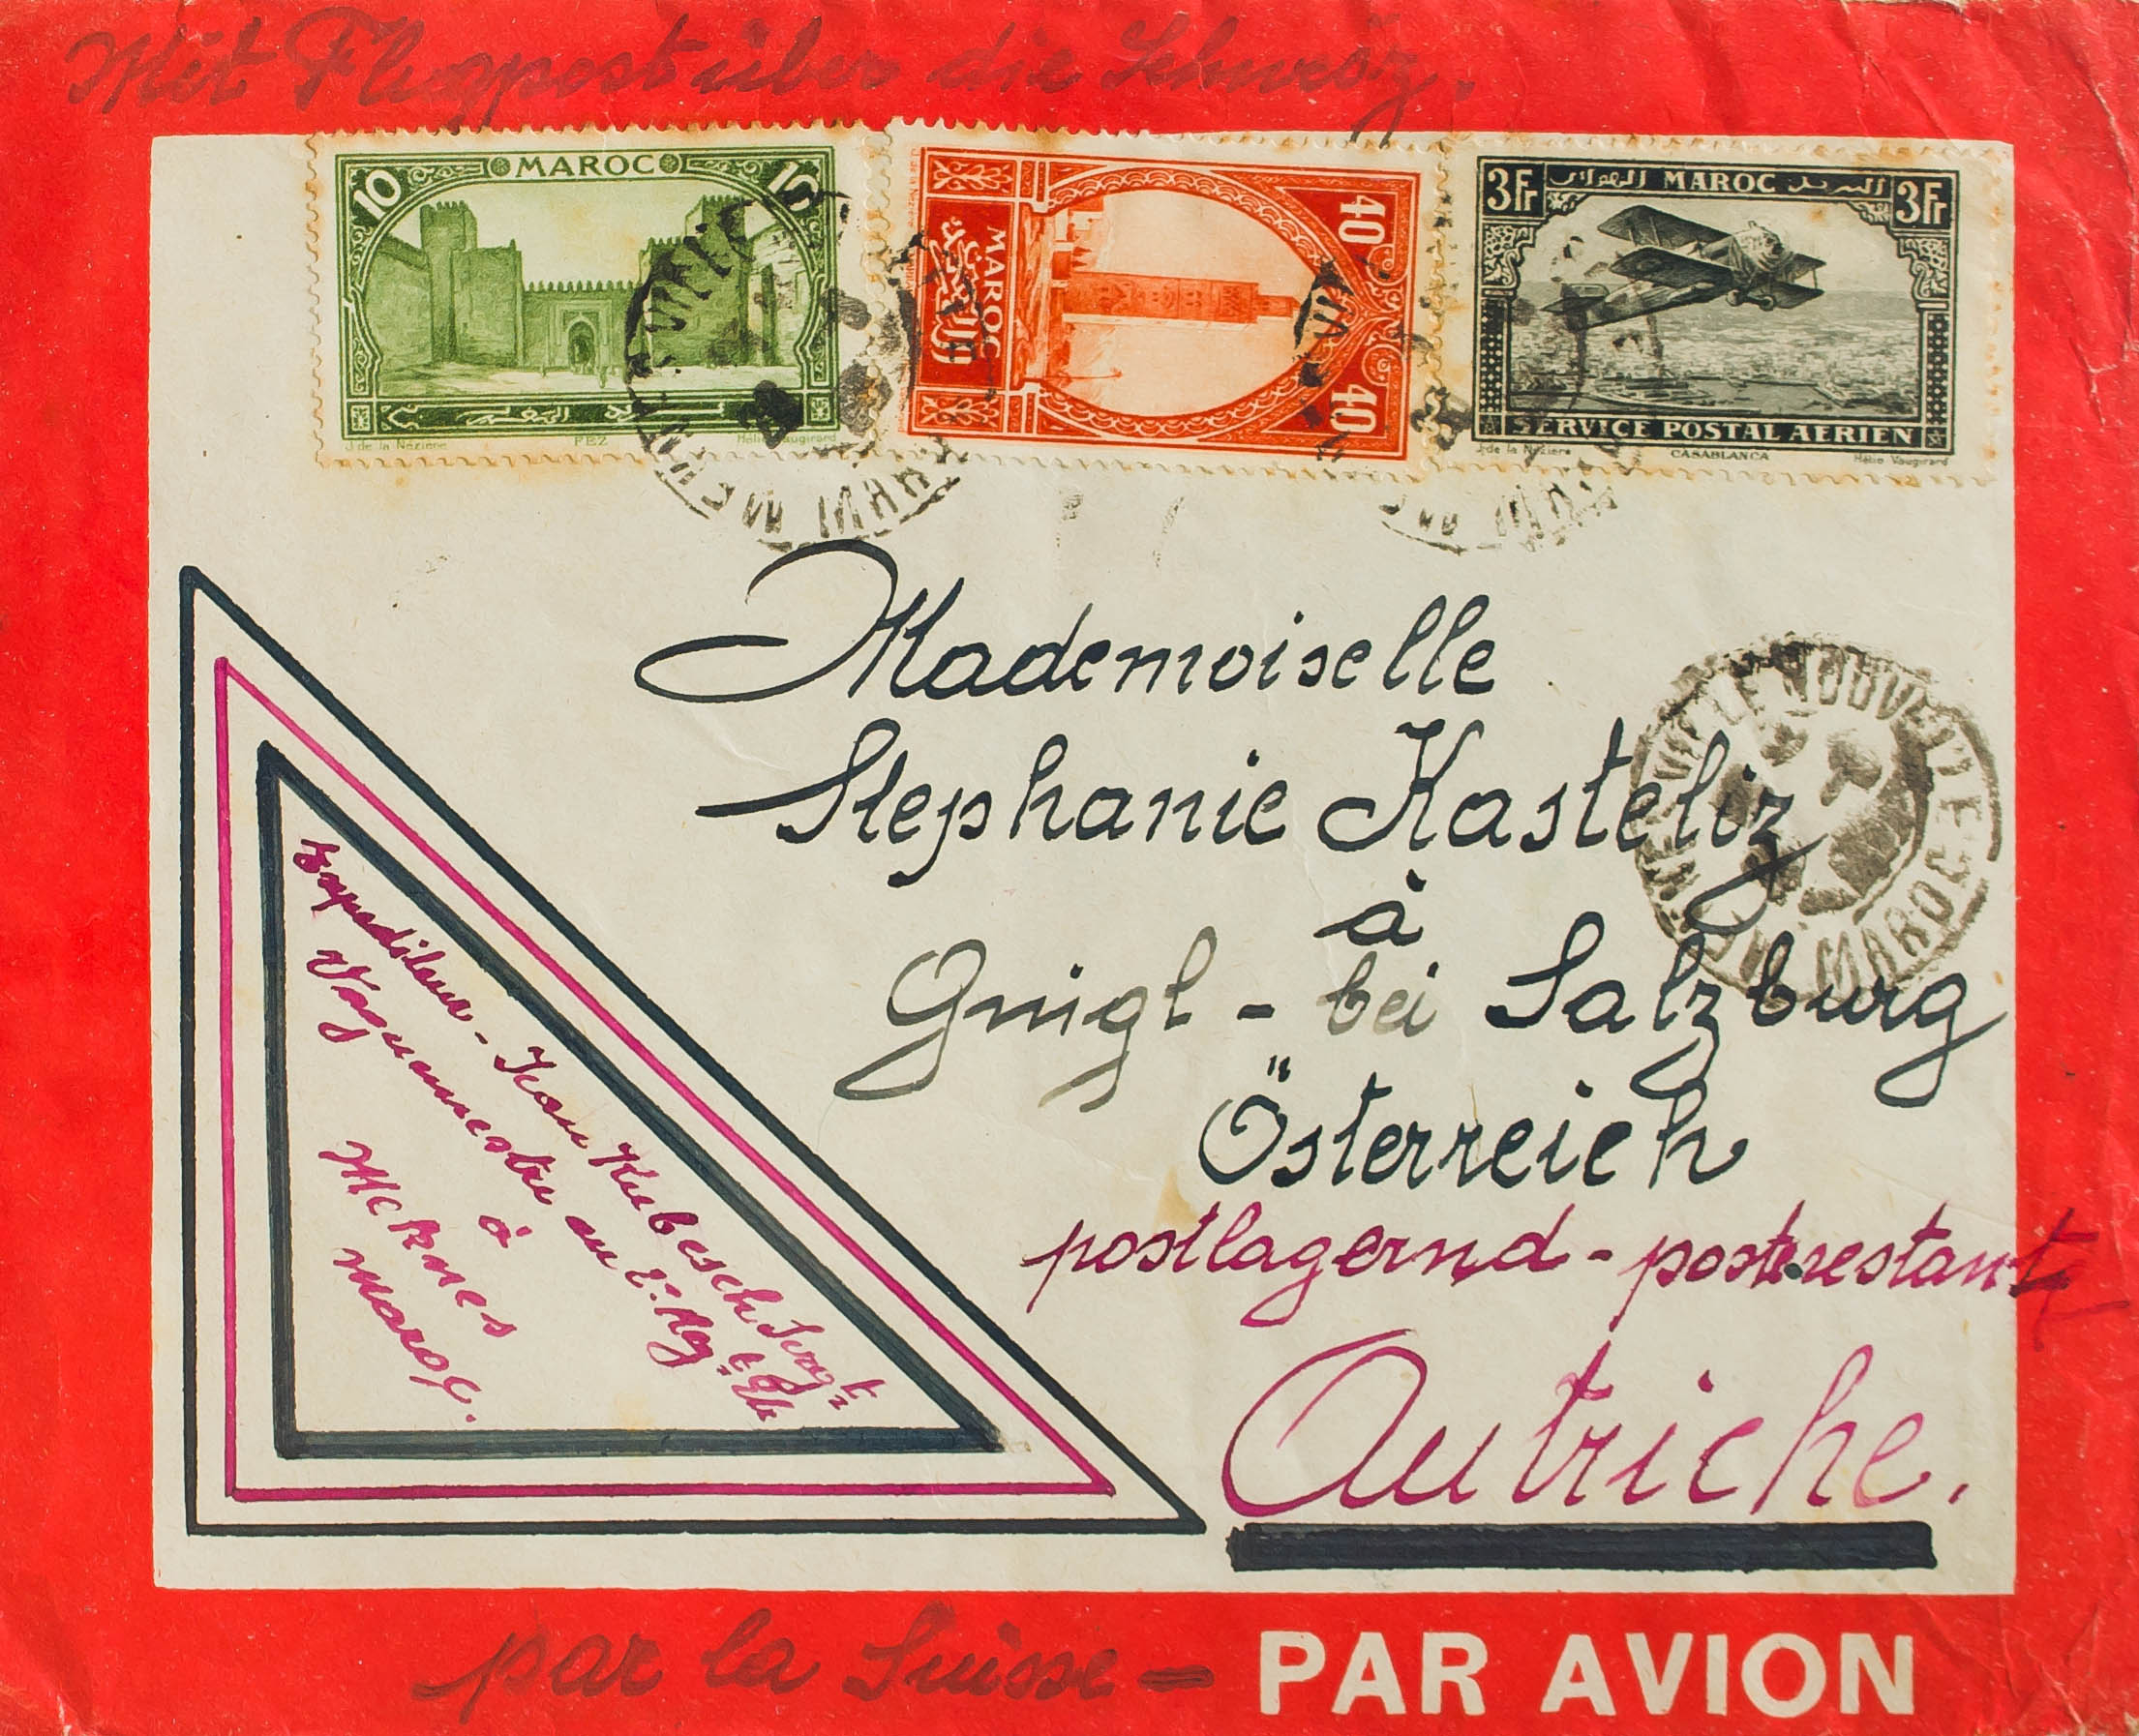 Mit Flugpost über die Schweiz.
10 MAROC 10
J. de la Nézière FEZ Hélio Vaugirard
MAROC
40
40
3Fr MAROC البريد الهوائي 3Fr
SERVICE POSTAL AERIEN
J. de la Nézière CASABLANCA Hélio Vaugirard
Mademoiselle
Stephanie Kasteliz
à
Gnigl - bei Salzburg
Österreich
postlagernd - poste restante
Autriche.
VILLE NOUVELLE
MAROC
Expediteur - Jean Kubesch Sergt.
Vaguemestre au 2e. Reg
à
Meknes
Maroc.
par la Suisse = PAR AVION